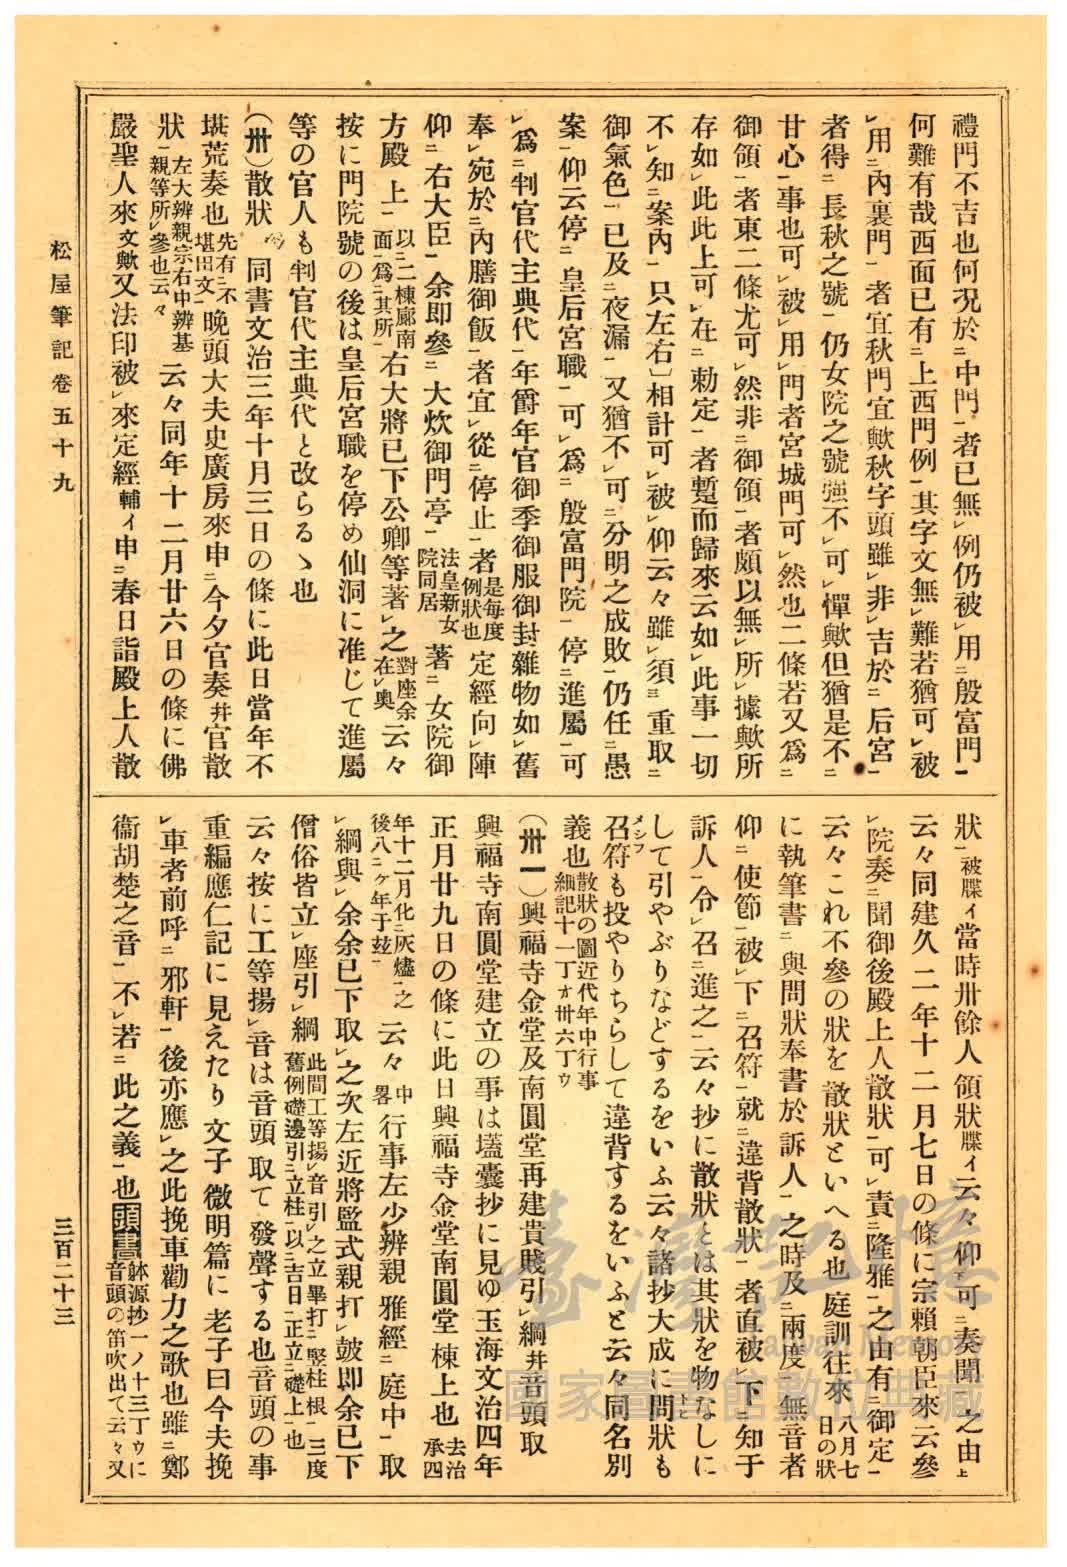 禮門不吉也何况於㆓中門㆒者已無㆑例仍被㆑用㆓殷富門㆒
何難有哉西面已有㆓上西門例㆒其字文無㆑難若猶可㆑被
㆑用㆓內裏門㆒者宜秋門宜歟秋字頭雖㆑非㆑吉於㆓后宮㆒
者得㆓長秋之號㆒仍女院之號强不㆑可㆑憚歟但猶是不㆓
甘心㆒事也可㆑被㆑用㆑門者宮城門可㆑然也二條若又爲㆓
御領㆒者東二條尤可㆑然非㆓御領㆒者頗以無㆑所㆑據歟所
存如㆑此此上可㆑在㆓勅定㆒者蹔而歸來云如㆑此事一切
不㆑知㆓案內㆒只左右〕相計可㆑被㆑仰云々雖㆑須㆔重取㆓
御氣色㆒已及㆓夜漏㆒又猶不㆑可㆓分明之成敗㆒仍任㆓愚
案㆒仰云停㆓皇后宮職㆒可㆑爲㆓殷富門院㆒停㆓進屬㆒可
㆑爲㆓判官代主典代㆒年爵年官御季御服御封雜物如㆑舊
奉㆑宛於㆓內膳御飯㆒者宜㆑從㆓停止㆒者是每度例狀也定經向㆑陣
仰㆓右大臣㆒余即參㆓大炊御門亭㆒法皇新女院同居著㆓女院御
方殿上㆒以㆓二棟廊南面㆒爲㆓其所㆒右大將已下公卿等著㆑之對座余在㆑奧云々
按に門院號の後は皇后宮職を停め仙洞に准じて進屬
等の官人も判官代主典代と改らるゝ也
(卅)散狀 同書文治三年十月三日の條に此日當年不
堪荒奏也先有㆓不堪出文㆒晚頭大夫史廣房來申㆓今夕官奏幷官散
狀㆒左大辨親宗右中辨基親等所㆑參也云々云々同年十二月廿六日の條に佛
嚴聖人來文歟又法印被㆑來定經輔イ申㆓春日詣殿上人散
狀㆒被牒イ當時卅餘人領狀牒イ云々仰下可㆓奏聞㆒之由上
云々同建久二年十二月七日の條に宗賴朝臣來云參
㆑院奏㆓聞御後殿上人散狀㆒可㆑責㆓隆雅㆒之由有㆓御定㆒
云々これ不參の狀を散狀といへる也庭訓往來八月七日の狀
に執筆書㆓與問狀奉書於訴人㆒之時及㆓兩度㆒無音者
仰㆓使節㆒被㆑下㆓召符㆒就㆓違背散狀㆒者直被㆑下㆓知于
訴人㆒令㆑召㆓進之㆒云々抄に散狀とは其狀を物なしに
して引やぶりなどするをいふ云々諸抄大成に問狀も
召符も投やりちらして違背するをいふと云々同名別
義也散狀の圖近代年中行事細記十一丁オ卅六丁ウ
(卅一)興福寺金堂及南圓堂再建貴賤引㆑綱幷音頭取
興福寺南圓堂建立の事は壒囊抄に見ゆ玉海文治四年
正月廿九日の條に此日興福寺金堂南圓堂棟上也去治承四
年十二月化㆓灰燼㆒之後八㆓ケ年于玆㆒云々中畧行事左少辨親雅經㆓庭中㆒取
㆑綱與㆑余余已下取㆑之次左近將監式親打㆑皷即余已下
僧俗皆立㆑座引㆑綱此間工等揚㆑音引㆑之立畢打㆓竪柱根㆒三度舊例礎邊引㆓立柱㆒以㆓吉日㆒正立㆓礎上㆒也
云々按に工等揚㆑音は音頭取て發聲する也音頭の事
重編應仁記に見えたり文子微明篇に老子曰今夫挽
㆑車者前呼㆓邪軒㆒後亦應㆑之此挽車勸力之歌也雖㆓鄭
衞胡楚之音㆒不㆑若㆓此之義㆒也頭書躰源抄一ノ十三丁ウに音頭の笛吹出て云々又
松屋筆記卷五十九
三百二十三
臺灣記憶
Taiwan Memory
國家圖書館數位典藏